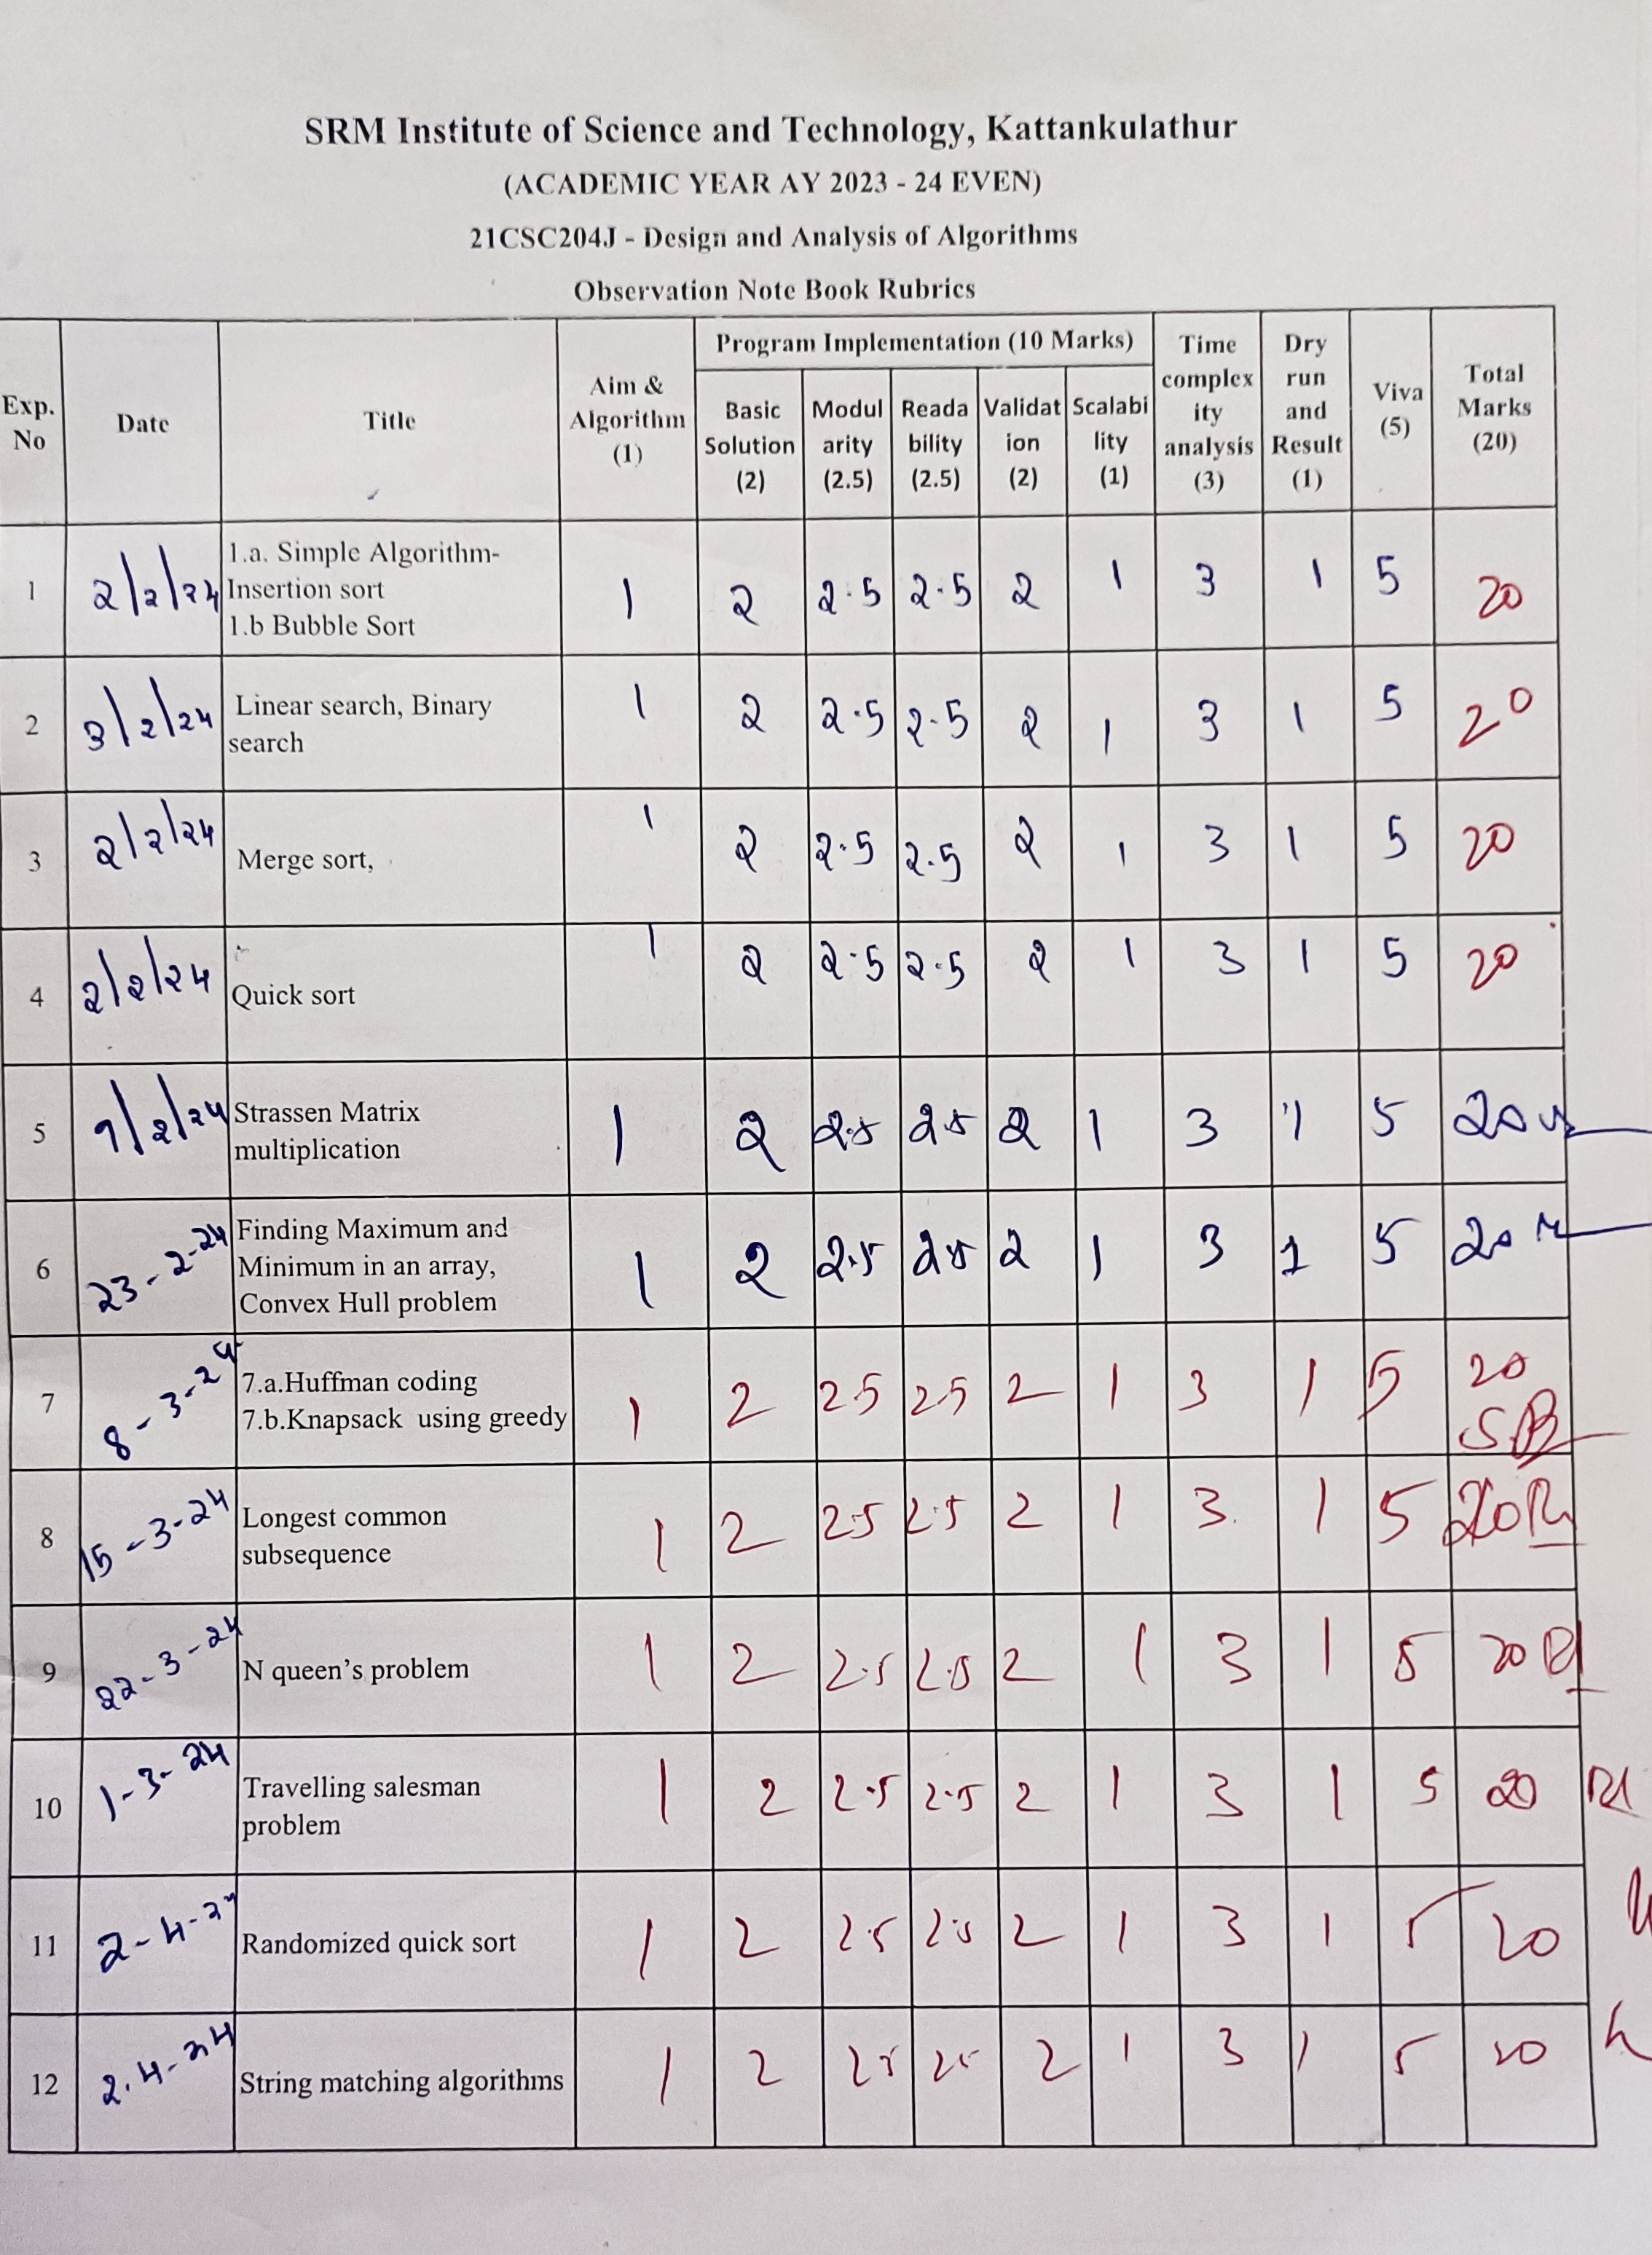 SRM Institute of Science and Technology, Kattankulathur
(ACADEMIC YEAR AY 2023 - 24 EVEN)
21CSC204J - Design and Analysis of Algorithms
Observation Note Book Rubrics
Exp. No Date Title Aim & Algorithm (1) Program Implementation (10 Marks) Time complex ity analysis (3) Dry run and Result (1) Viva (5) Total Marks (20)
Basic Solution (2) Modul arity (2.5) Reada bility (2.5) Validat ion (2) Scalabi lity (1)
1 2/2/24 1.a. Simple Algorithm- Insertion sort 1.b Bubble Sort 1 2 2.5 2.5 2 1 3 1 5 20
2 3/2/24 Linear search, Binary search 1 2 2.5 2.5 2 1 3 1 5 20
3 2/2/24 Merge sort, 1 2 2.5 2.5 2 1 3 1 5 20
4 2/2/24 Quick sort 1 2 2.5 2.5 2 1 3 1 5 20
5 9/2/24 Strassen Matrix multiplication 1 2 2.5 2.5 2 1 3 1 5 20
6 23-2-24 Finding Maximum and Minimum in an array, Convex Hull problem 1 2 2.5 2.5 2 1 3 1 5 20
7 8-3-24 7.a.Huffman coding 7.b.Knapsack using greedy 1 2 2.5 2.5 2 1 3 1 5 20
8 15-3-24 Longest common subsequence 1 2 2.5 2.5 2 1 3 1 5 20
9 22-3-24 N queen's problem 1 2 2.5 2.5 2 1 3 1 5 20
10 1-3-24 Travelling salesman problem 1 2 2.5 2.5 2 1 3 1 5 20
11 2-4-24 Randomized quick sort 1 2 2.5 2.5 2 1 3 1 5 20
12 2.4-24 String matching algorithms 1 2 25 25 2 1 3 1 5 20